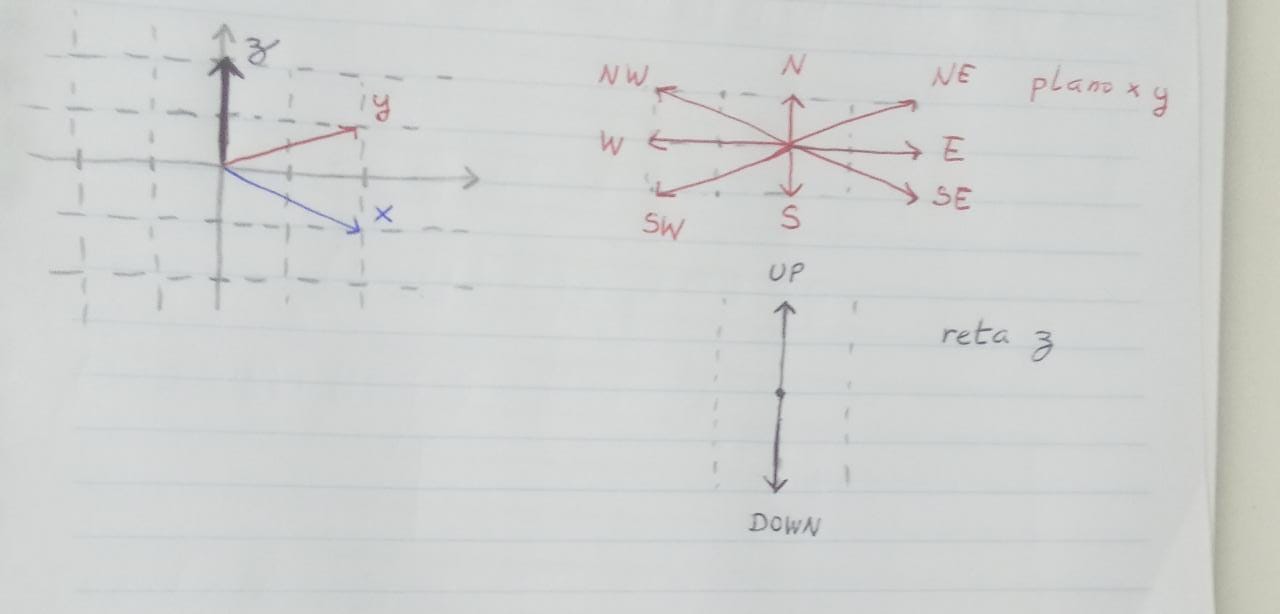 z
y
x
NW N NE plano x y
W E
SW S SE
UP
reta z
DOWN